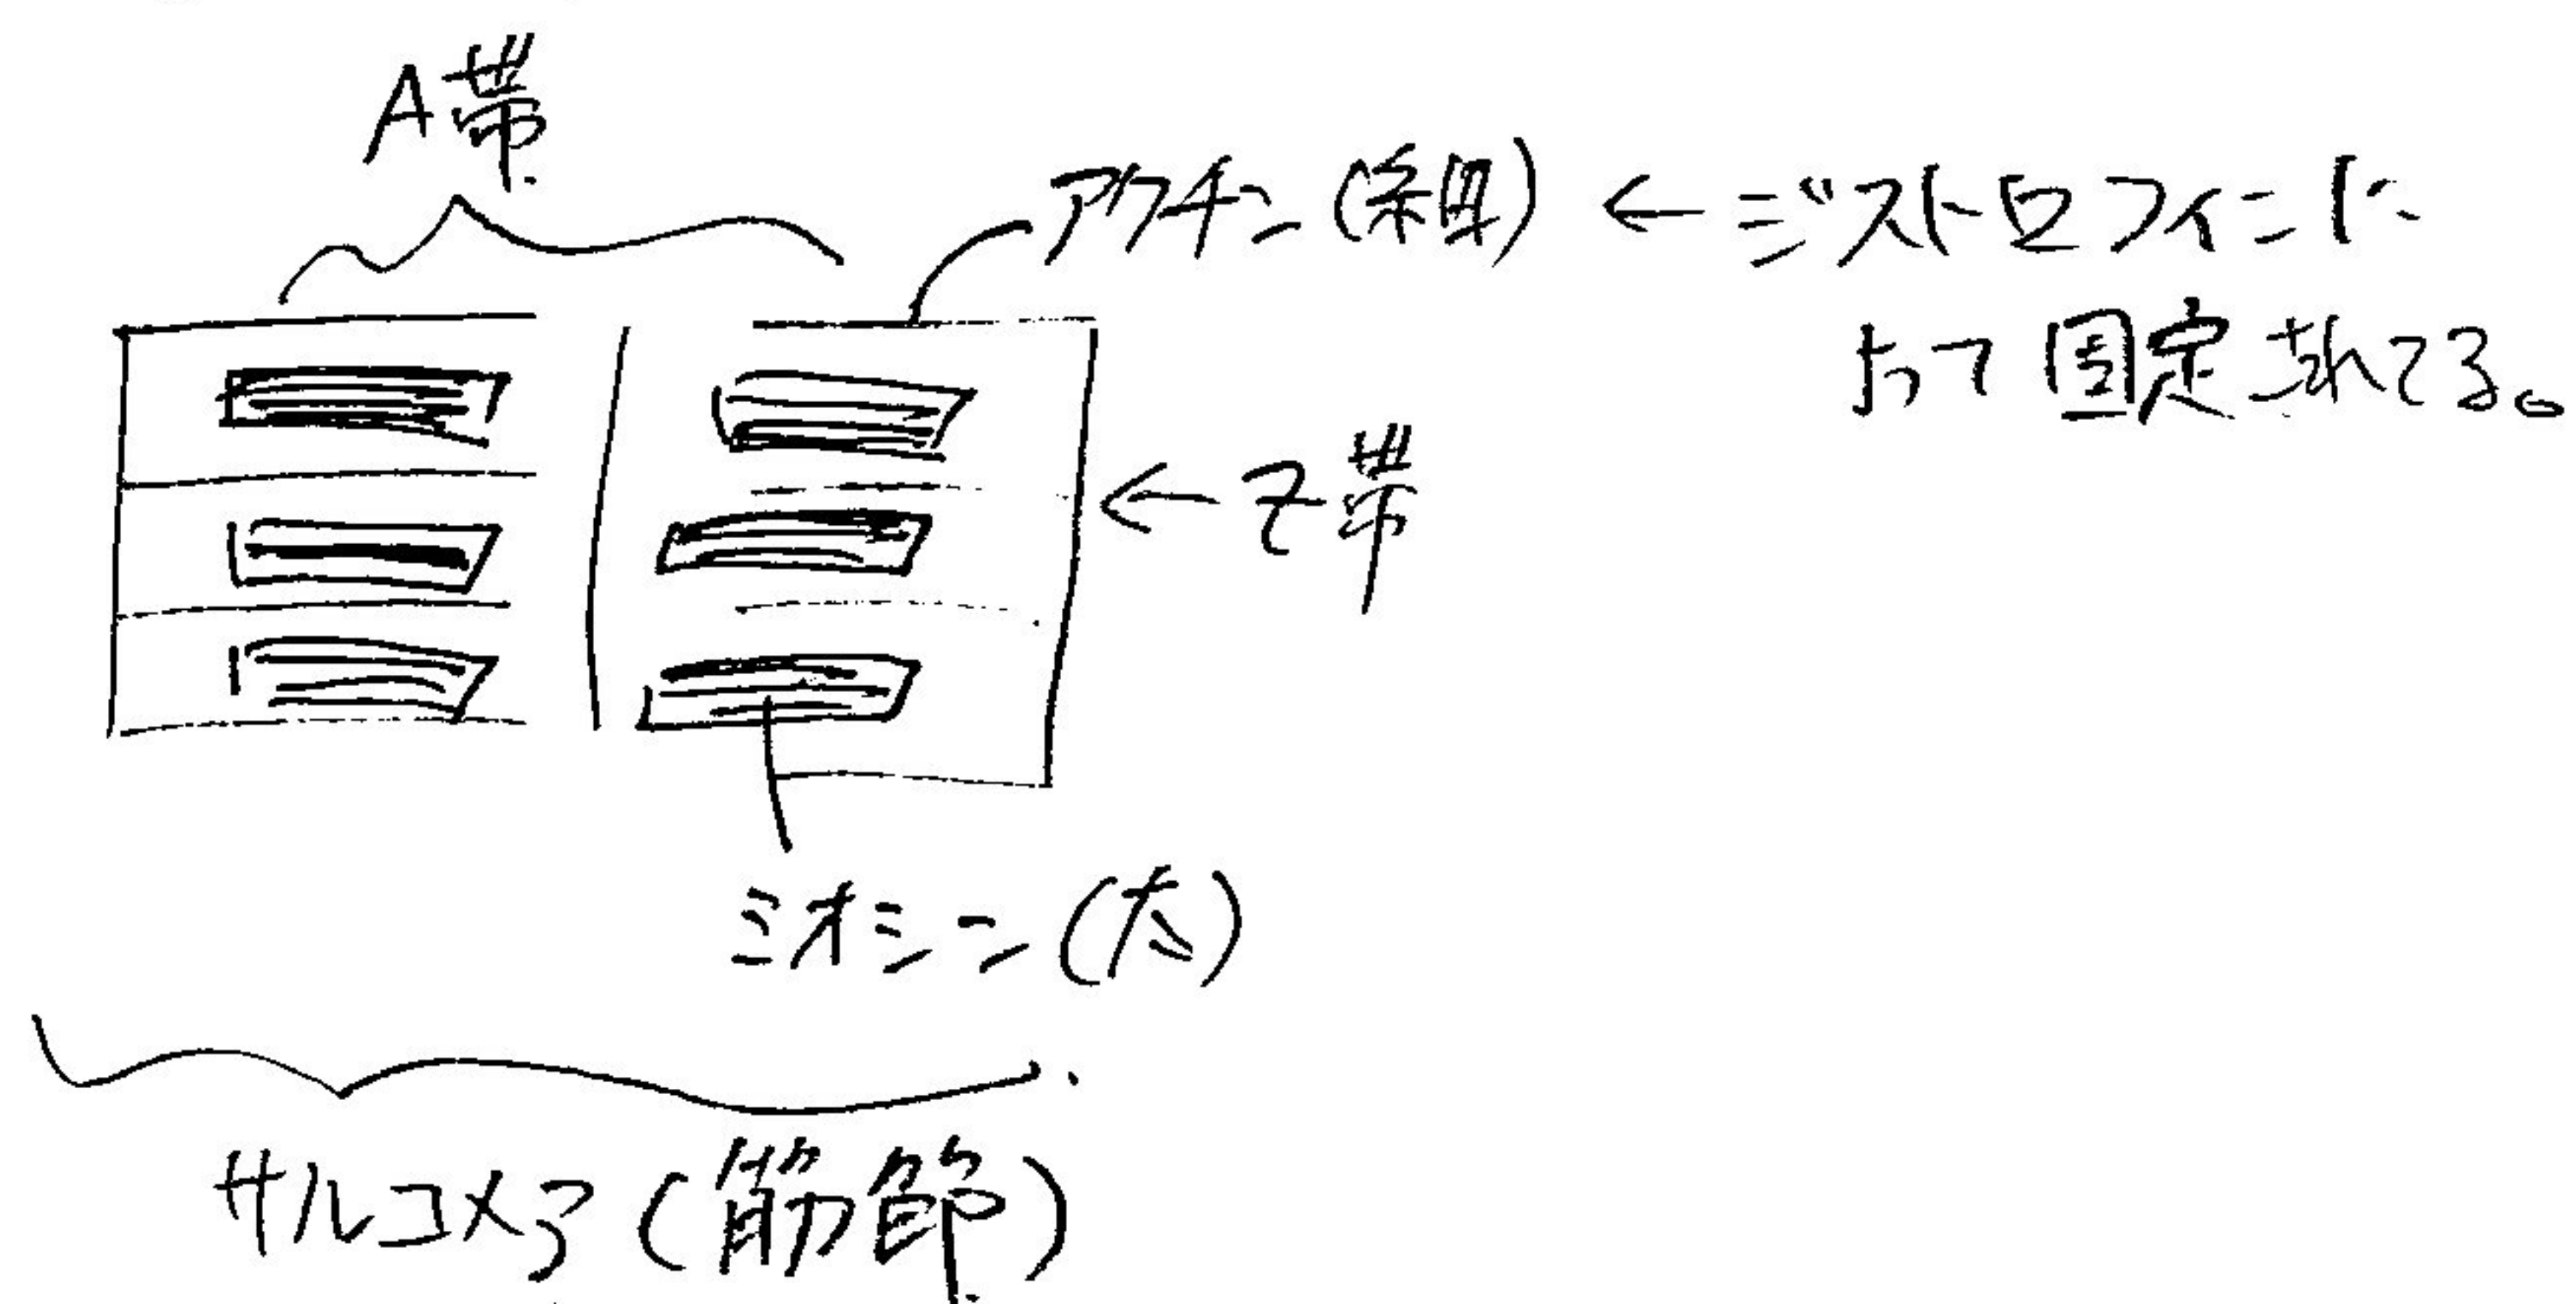 A帯
アクチン(細) ← ジストロフィンに
よって固定されてる。
← Z帯
ミオシン(太)
サルコメア(筋節)